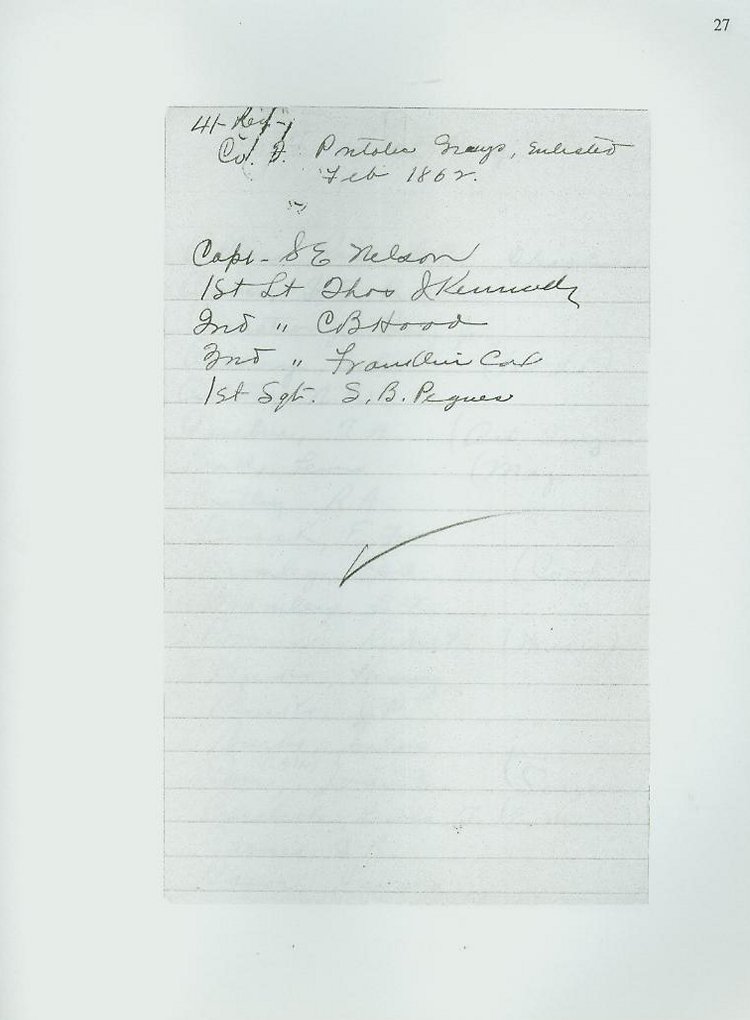 27
41- Reg-
Co. F. Pontotoc Grays, Enlisted
Feb 1862.
Capt- S E Nelson
1st Lt Thos J Kennedy
2nd " C B Hood
3nd " Franklin Cox
1st Sgt. S. B. Pegues